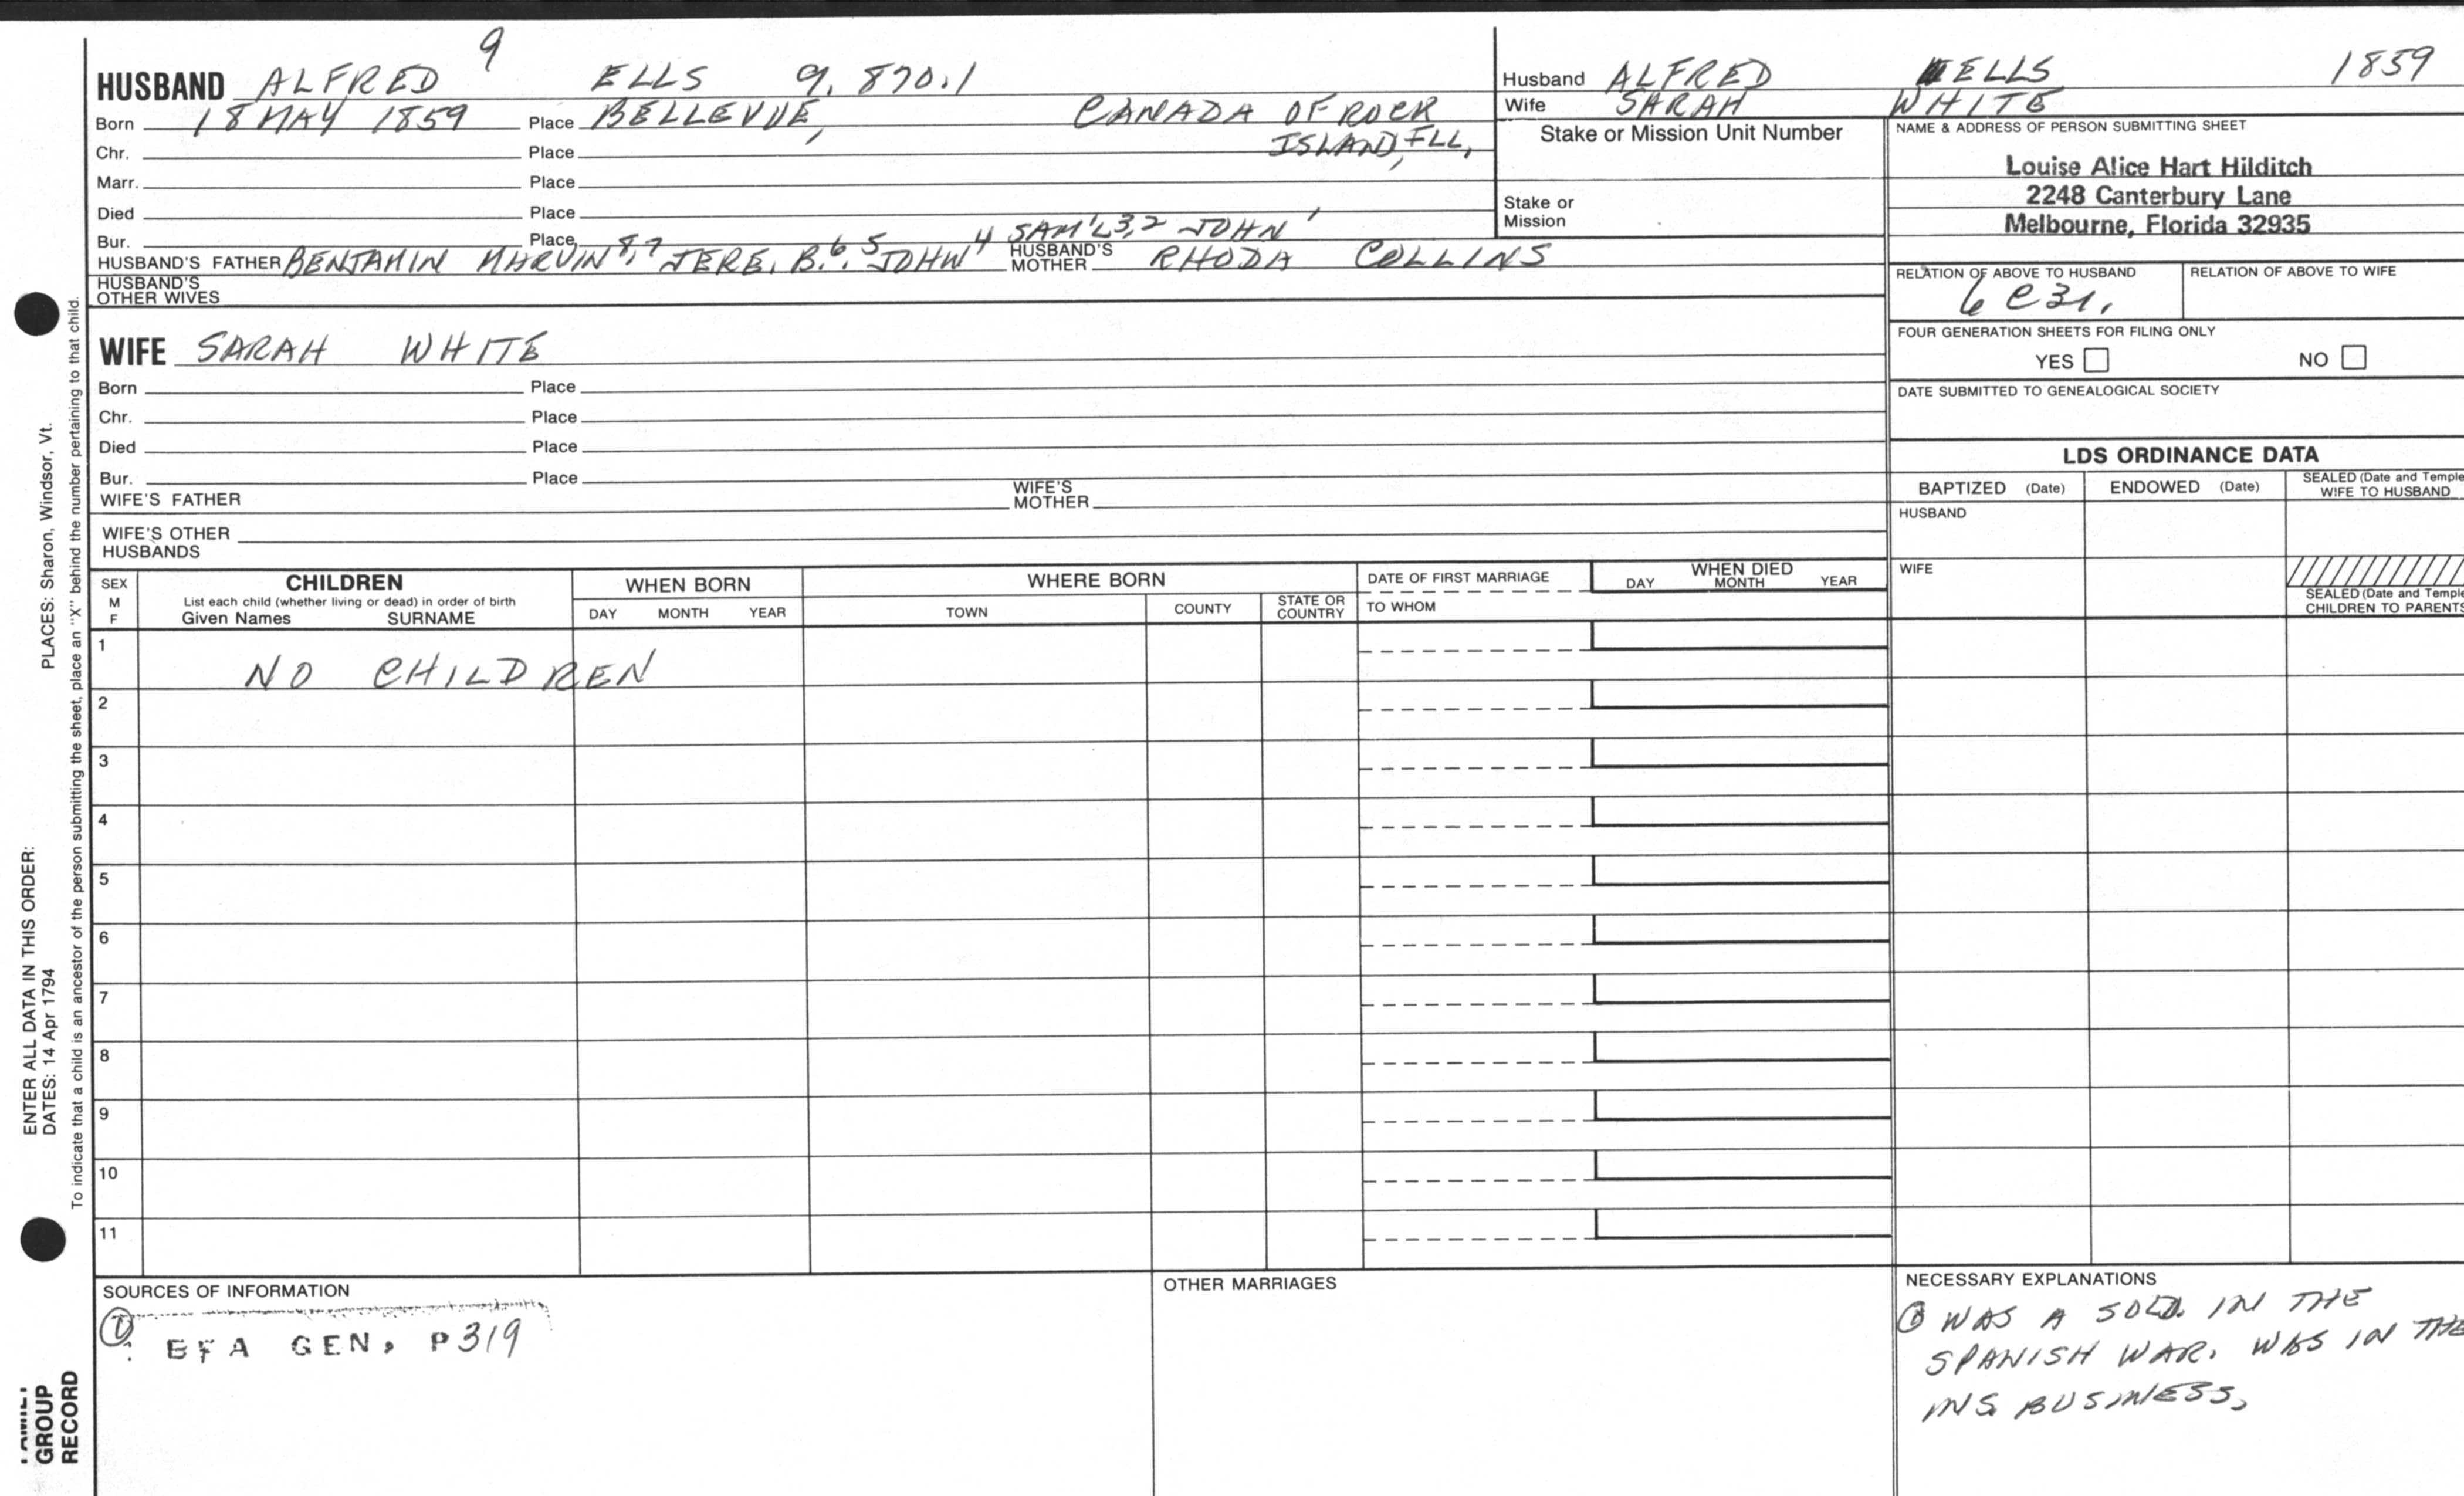 HUSBAND ALFRED 9 ELLS 9, 870.1
Born 18 MAY 1859 Place BELLEVUE, CANADA OF ROCK
ISLAND, ILL,
Chr. Place
Marr. Place
Died Place
Bur. Place
HUSBAND'S FATHER BENJAMIN MARVIN 8,7 JERE. B. 6, 5 JOHN 4 SAM'L 3,2 JOHN 1 HUSBAND'S MOTHER RHODA COLLINS
HUSBAND'S
OTHER WIVES
WIFE SARAH WHITE
Born Place
Chr. Place
Died Place
Bur. Place
WIFE'S FATHER WIFE'S MOTHER
WIFE'S OTHER
HUSBANDS
Husband ALFRED ELLS 1859
Wife SARAH WHITE
Stake or Mission Unit Number
Stake or
Mission
NAME & ADDRESS OF PERSON SUBMITTING SHEET
Louise Alice Hart Hilditch
2248 Canterbury Lane
Melbourne, Florida 32935
RELATION OF ABOVE TO HUSBAND RELATION OF ABOVE TO WIFE
6 C 3r,
FOUR GENERATION SHEETS FOR FILING ONLY
YES NO
DATE SUBMITTED TO GENEALOGICAL SOCIETY
LDS ORDINANCE DATA
BAPTIZED (Date) ENDOWED (Date) SEALED (Date and Temple
WIFE TO HUSBAND
HUSBAND
WIFE
SEALED (Date and Temple
CHILDREN TO PARENTS
SEX
M
F
CHILDREN
List each child (whether living or dead) in order of birth
Given Names SURNAME
WHEN BORN
DAY MONTH YEAR
WHERE BORN
TOWN COUNTY STATE OR COUNTRY
DATE OF FIRST MARRIAGE
TO WHOM
WHEN DIED
DAY MONTH YEAR
1 NO CHILDREN
2
3
4
5
6
7
8
9
10
11
SOURCES OF INFORMATION
① EFA GEN, P319
OTHER MARRIAGES
NECESSARY EXPLANATIONS
① WAS A SOLD. IN THE
SPANISH WAR. WAS IN THE
INS. BUSINESS,
PLACES: Sharon, Windsor, Vt.
ENTER ALL DATA IN THIS ORDER:
DATES: 14 Apr 1794
To indicate that a child is an ancestor of the person submitting the sheet, place an "X" behind the number pertaining to that child.
FAMILY
GROUP
RECORD